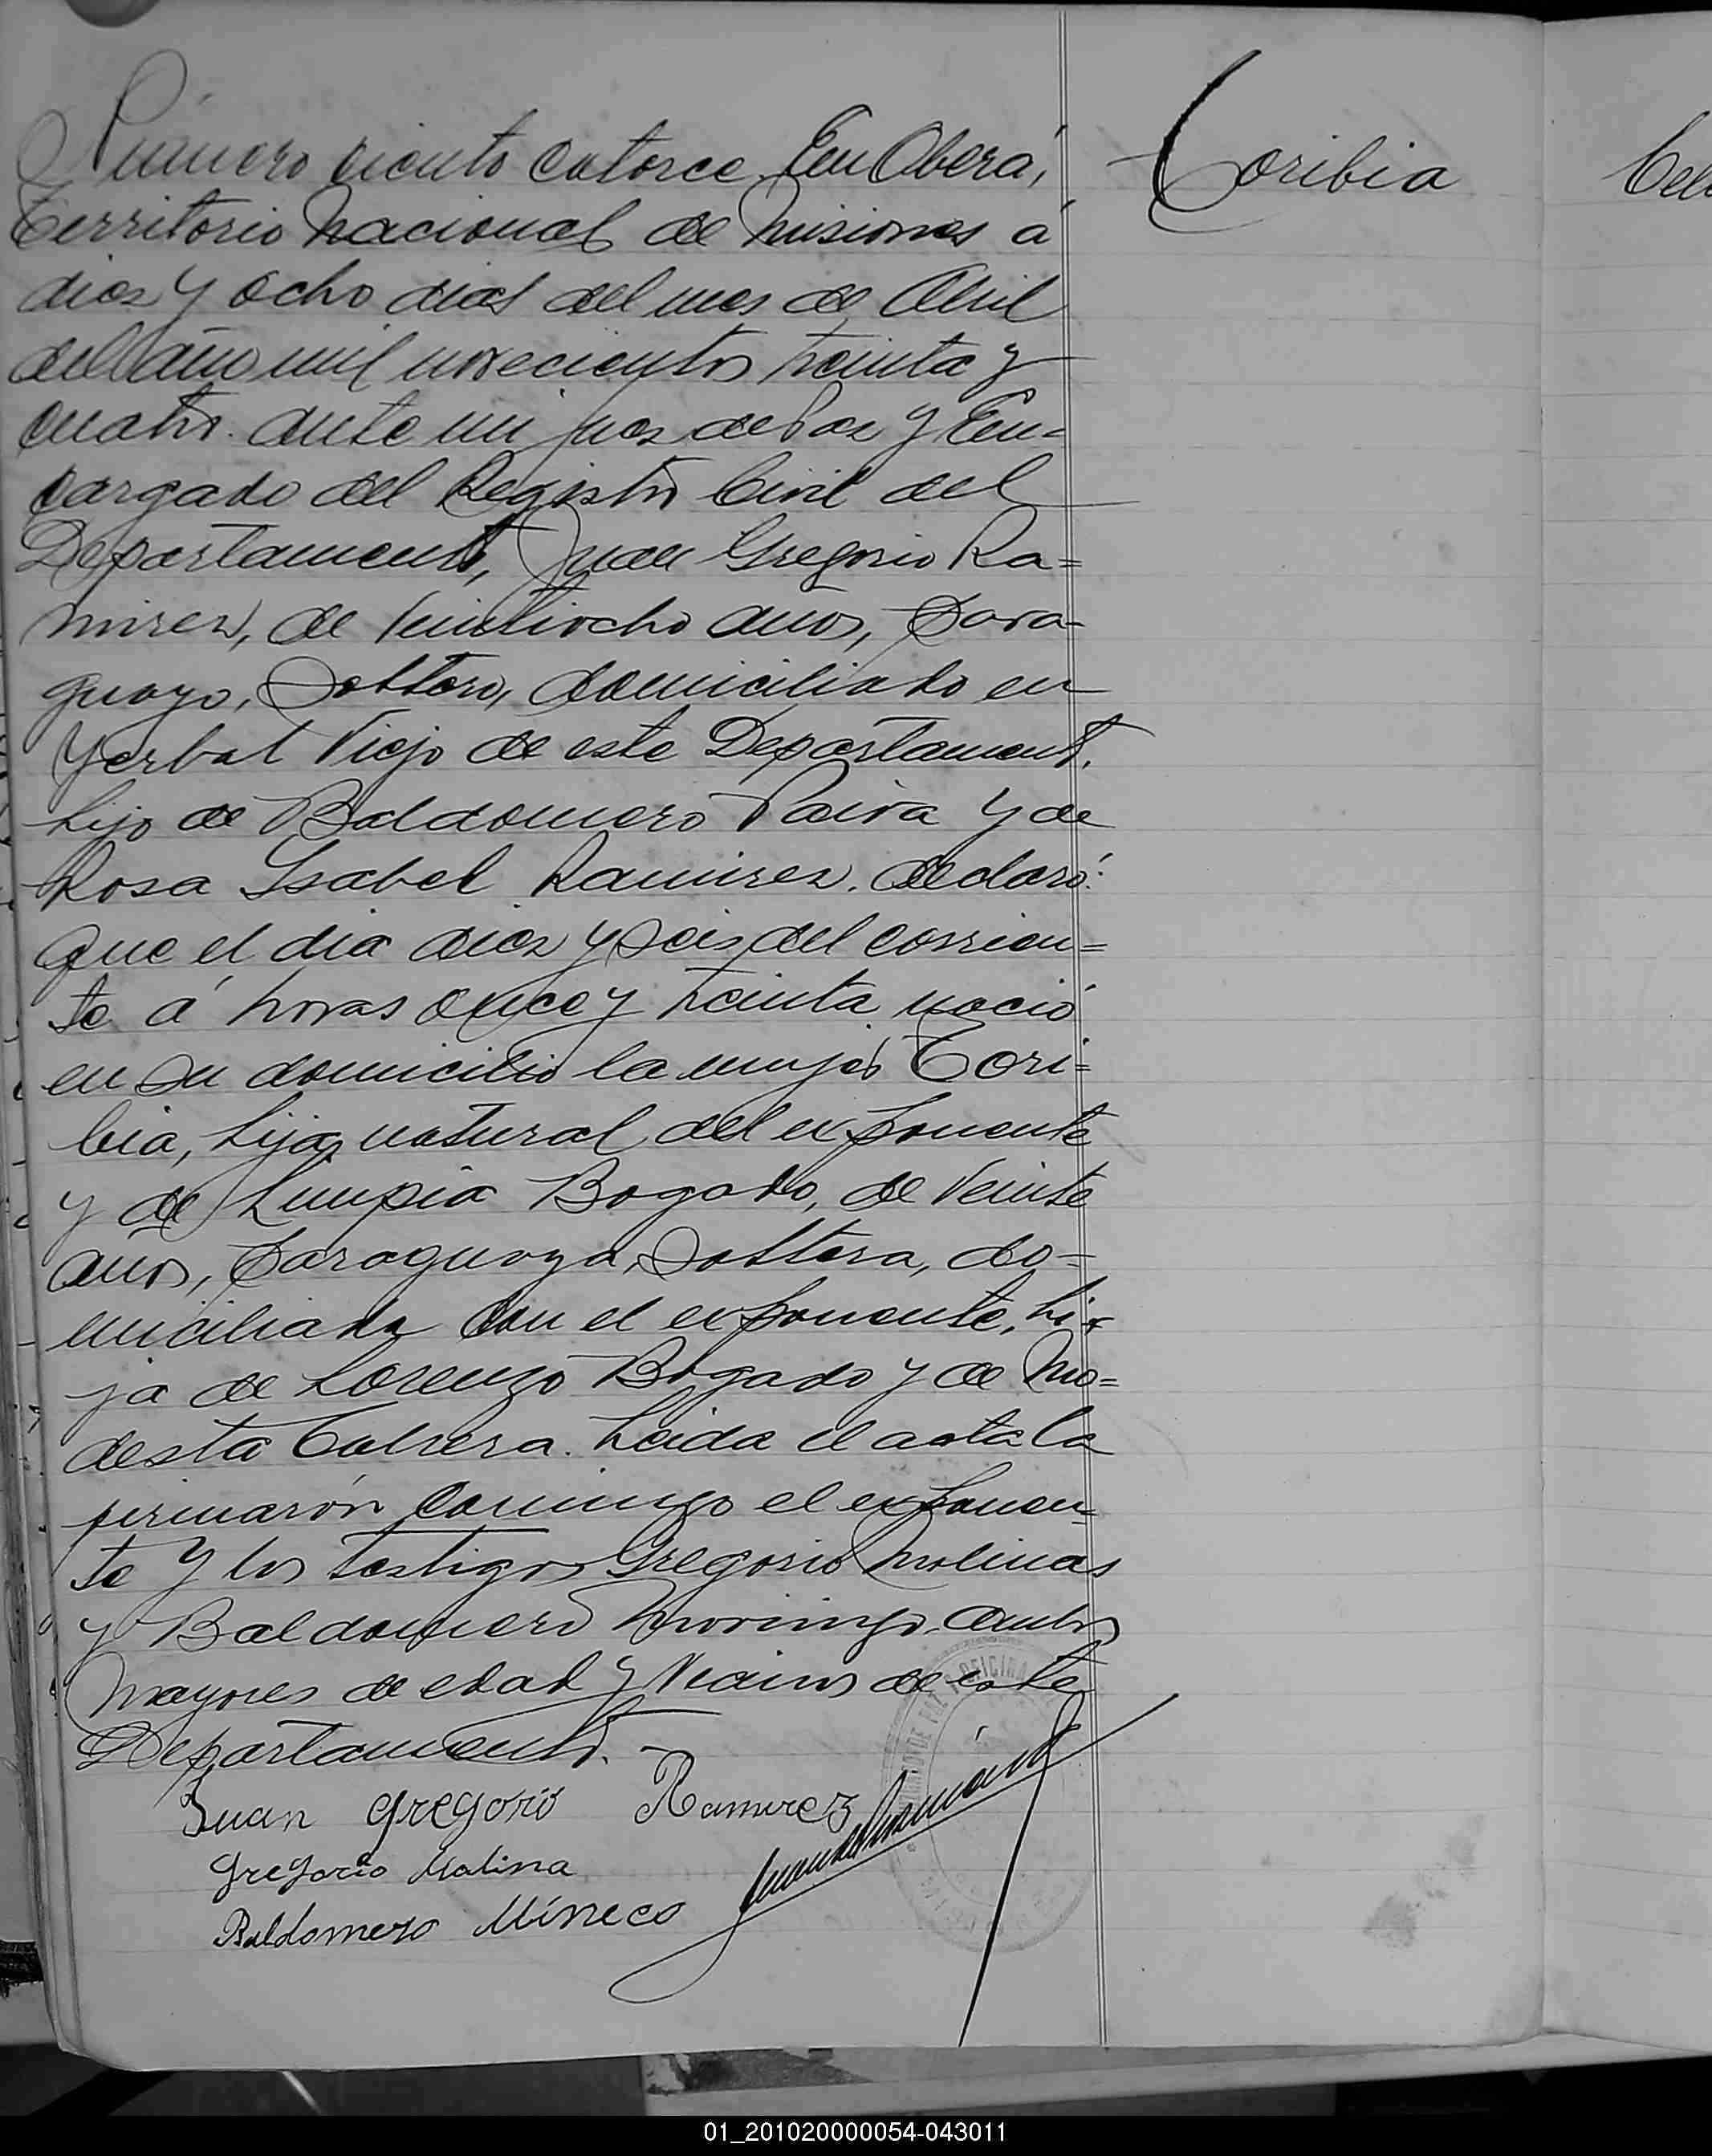 Número ciento catorce. En Oberá,
Territorio Nacional de Misiones á
diez y ocho dias del mes de Abril
del año mil novecientos treinta y
cuatro. ante mi juez de Paz y En=
cargado del Registro Civil del
Departamento, Juan Gregorio Ra=
mirez, de veintiocho años, para-
guayo, Soltero, domiciliado en
Yerbal Viejo de este Departamento.
hijo de Baldomero Paiva y de
Rosa Isabel Ramirez. declaró:
que el dia diez y seis del corrien=
te á horas once y treinta nació
en su domicilio la mujer Tori=
bia, hija natural del exponente
y de Limpia Bogado, de veinte
años, paraguaya, Soltera, do=
miciliada con el exponente, hi=
ja de Lorenzo Bogado y de Mo=
desta Cabrera. Leida el acta la
firmarón conmigo el exponen=
te y los testigos Gregorio Molinas
y Baldomero ambos
mayores de edad y vecinos de este
Departamento.-
Juan Gregorio Ramirez
Gregorio Malina
Baldomero Míneco
Toribia
01_201020000054-043011